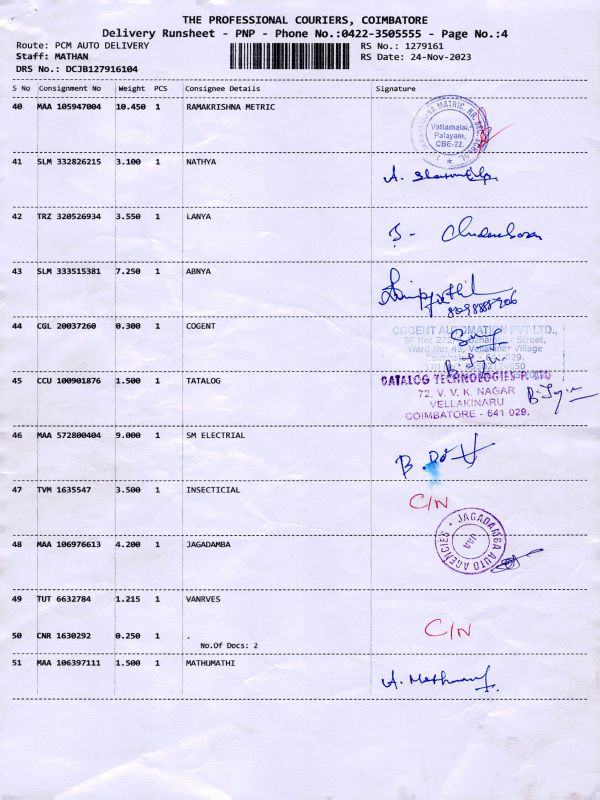 THE PROFESSIONAL COURIERS, COIMBATORE
Delivery Runsheet - PNP - Phone No.:0422-3505555 - Page No.:4
Route: PCM AUTO DELIVERY RS No.: 1279161
Staff: MATHAN RS Date: 24-Nov-2023
DRS No.: DCJB127916104
S No Consignment No Weight PCS Consignee Details Signature
40 MAA 105947004 10.450 1 RAMAKRISHNA METRIC
Vattamalai
Palayam,
CBE-22.
41 SLM 332826215 3.100 1 NATHYA
42 TRZ 320526934 3.550 1 LANYA
43 SLM 333515381 7.250 1 ABNYA
44 CGL 20037260 0.300 1 COGENT
COGENT AUTOMATION PVT LTD.,
Street,
Ward No: 43, Village
45 CCU 100901876 1.500 1 TATALOG
DATALOG TECHNOLOGIES P. LTD
72, V. V. K. NAGAR
VELLAKINARU
COIMBATORE - 641 029.
46 MAA 572800404 9.000 1 SM ELECTRIAL
47 TVM 1635547 3.500 1 INSECTICIAL
C/N
48 MAA 106976613 4.200 1 JAGADAMBA
JAGADAMBA AUTO AGENCIES
49 TUT 6632784 1.215 1 VANRVES
50 CNR 1630292 0.250 1 .
C/N
No.Of Docs: 2
51 MAA 106397111 1.500 1 MATHUMATHI